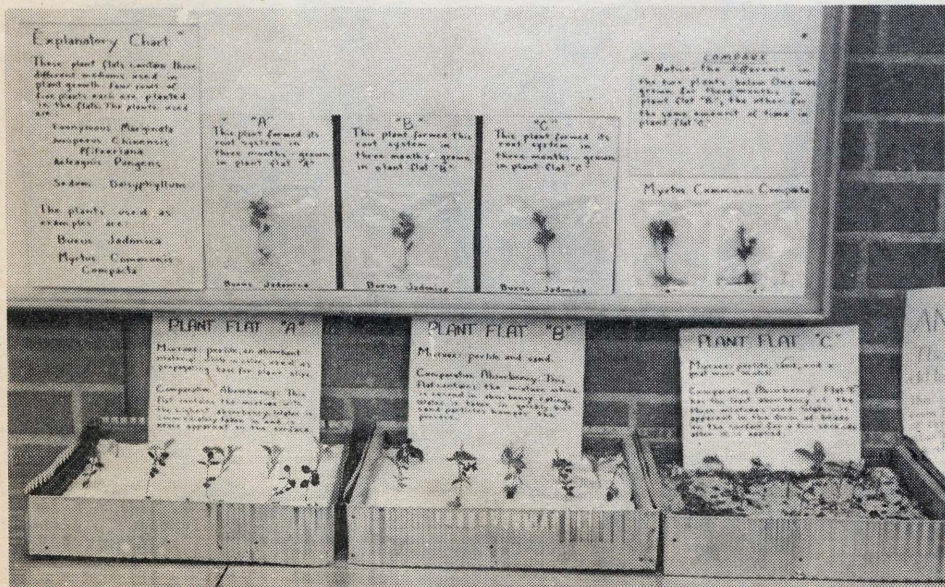 Explanatory Chart
These plant flats contain three
different mediums used in
plant growth. Four rows of
five plants each are planted
in the flats. The plants used
are:
Euonymous Marginata
Juniperus Chinensis
Pfitzeriana
Pungens
Sedum Dasyphyllum
The plants used as
examples are:
Buxus Jadonica
Myrtus Communis
Compacta
"A"
This plant formed its
root system in
three months - grown
in plant flat "A"
Buxus Jadonica
"B"
This plant formed this
root system in
three months - grown
in plant flat "B"
Buxus Jadonica
"C"
This plant formed its
root system in
three months - grown
in plant flat "C"
Buxus Jadonica
COMPARE
Notice the difference in
the two plants below. One was
grown for three months in
plant flat "B", the other for
the same amount of time in
plant flat "C".
Myrtus Communis Compacta
PLANT FLAT "A"
Mixture: perlite, an absorbent
material, used as
propagating base for plant slips.
Comparative Absorbency: This
flat contains the mixture with
the highest absorbency. Water is
immediately taken in and is
never apparent on the surface.
PLANT FLAT "B"
Mixture: perlite and sand.
Comparative Absorbency: This
flat contains the mixture which
is second in absorbency rating.
Water is taken in quickly but
sand particles hamper the
process.
PLANT FLAT "C"
Mixture: perlite, sand, and
Comparative Absorbency: Flat "C"
has the least absorbency of the
three mixtures used. Water
appeared in the form of beads
on the surface for a few seconds
after it is applied.
AN